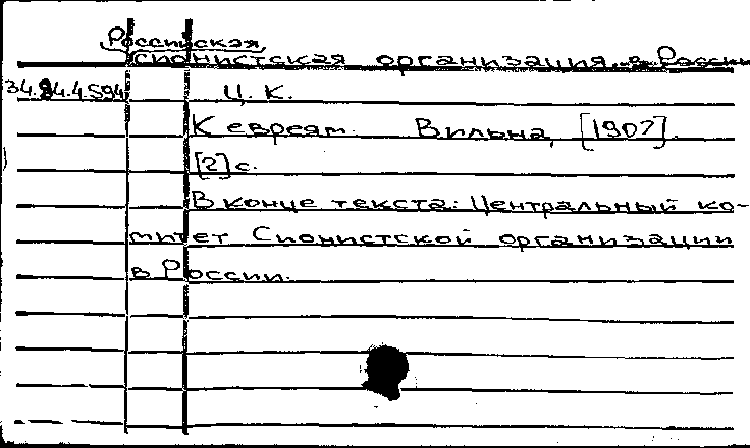 Российская
сионистская организация в России
34.84.4.594 Ц. К.
К евреям. Вильна, [1907].
[2] с.
В конце текста: Центральный ко-
митет Сионистской организации
в России.